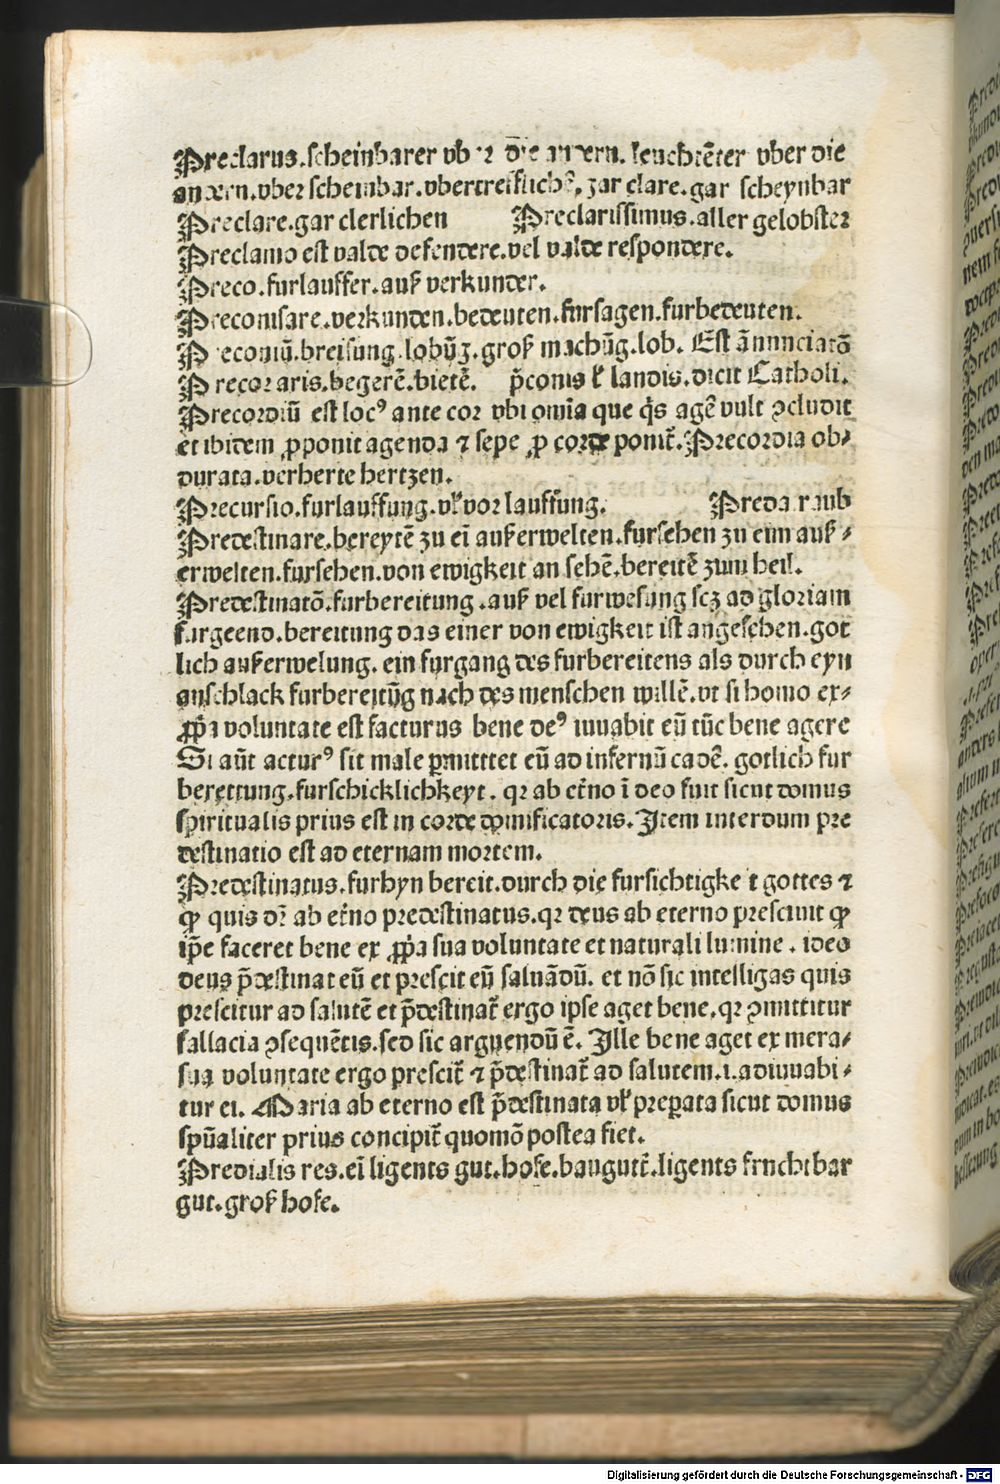 Preclarus.scheinbarer vber die andern.leuchtẽter vber die
andern.vber scheinbar.vbertrefflichꝰ,gar clare.gar scheynbar
Preclare.gar clerlichen Preclarissimus.aller gelobster
Preclamo est valde defendere.vel valde respondere.
Preco.furlauffer.auß verkunder.
Preconisare.verkunden.bedeuten.fursagen.furbedeuten.
Preconiũ.breisung.lobũg.groß machũg.lob. Est ãnunciatõ
Precor aris.begerẽ.bietẽ. p̃conis ł laudis.dicit Catholi.
Precordiũ est locꝰ ante cor vbi omĩa que q̃s agẽ vult ꝯcludit
et ibidem ꝓponit agenda ⁊ sepe ꝓ corde ponit᷑.Precordia ob⸗
durata.verherte hertzen.
Precursio.furlauffung.vł vor lauffung. Preda raub
Predestinare.bereytẽ zu eĩ außerwelten.fursehen zu eim auß⸗
erwelten.fursehen.von ewigkeit an sehẽ.bereitẽ zum heil.
Predestinatõ.furbereitung.auß vel furwesung scz ad gloriam
furgeend.bereitung das einer von ewigkeit ist angesehen.got
lich außerwelung. ein furgang des furbereitens als durch eyn
anschlack furbereitũg nach des menschen willẽ.vt si homo ex⸗
ꝓp̃a voluntate est facturus bene deꝰ iuuabit eũ tũc bene agere
Si aũt acturꝰ sit male ꝑmittet eũ ad infernũ cadẽ. gotlich fur
bereitung.furschicklichkeyt. qr ab et̃no ĩ deo fuit sicut domus
spiritualis prius est in corde domificatoris.Item interdum pre
destinatio est ad eternam mortem.
Predestinatus.furhyn bereit.durch die fursichtigkeit gottes ⁊
ꝙ quis dr̃ ab et̃no predestinatus.qr deus ab eterno presciuit ꝙ
ip̃e faceret bene ex ꝓp̃a sua voluntate et naturali lumine. ideo
deus p̃destinat eũ et prescit eũ saluãdũ. et nõ sic intelligas quis
prescitur ad salutẽ et p̃destinat᷑ ergo ipse aget bene.qr ꝯmittitur
fallacia ꝯsequẽtis.sed sic arguendũ ẽ. Ille bene aget ex mera⸗
sua voluntate ergo prescit᷑ ⁊ p̃destinat᷑ ad salutem.i.adiuuabi⸗
tur ei. Maria ab eterno est p̃destinata vł preꝑata sicut domus
spũaliter prius concipit᷑ quomõ postea fiet.
Predialis res.eĩ ligents gut.hofe.baugutẽ.ligents fruchtbar
gut.groß hofe.
Digitalisierung gefördert durch die Deutsche Forschungsgemeinschaft - DFG